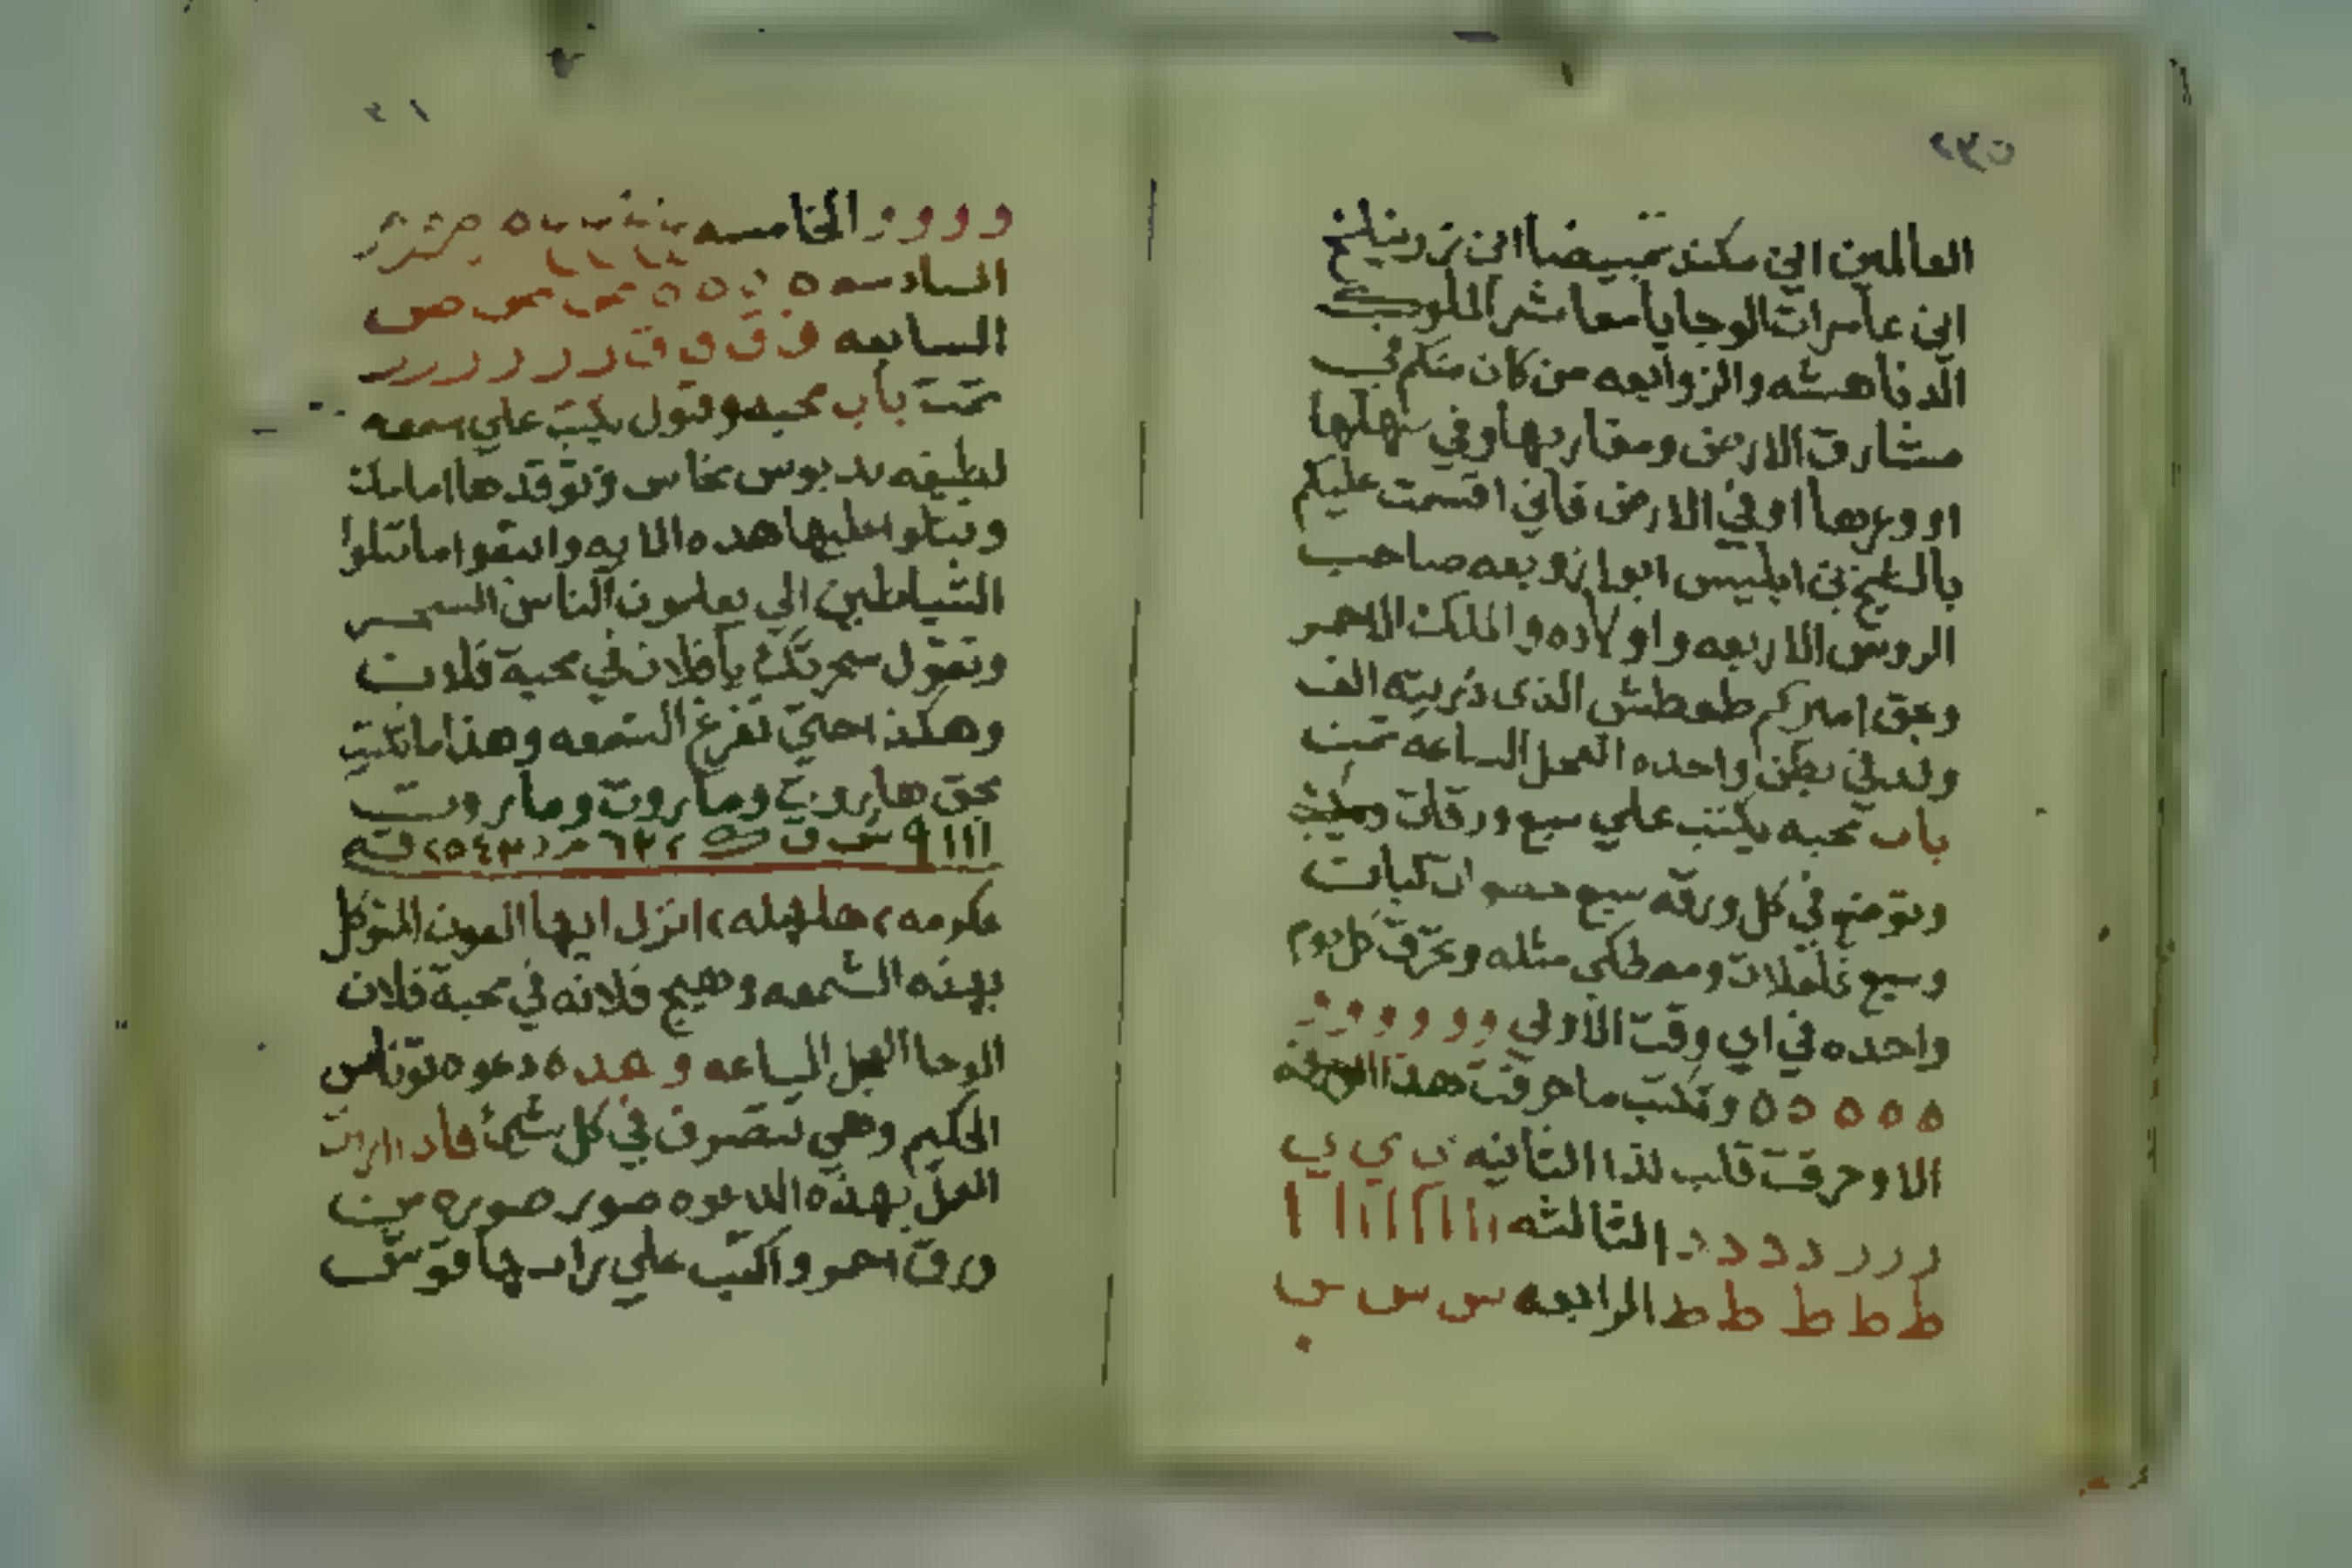 العالمين اين
اين عاسرات الوحا يا معاشر الملوك
الدناهشه والزوابعه من كان منكم في
مشارق الارض ومغاربها وفي سهلها
اووعرها او في الارض فاني اقسمت عليكم
ابليس ابوا زوبعه صاحب
الروس الاربعه واولاده والملك الاحمر
وبحق اميركم طمطش الذى ذريته الف
ولد في بطن واحده العجل الساعه تمت
باب محبه يكتب علي سبع ورقات
وتوضع في كل ورقه سبع
وسبع فلفلات ومصطكي مثله وتحرق كل يوم
واحده في اي وقت الاولي و و و و و و
ه ه ه ه ه وتكتب ما حرقت هذا الورقه
الا وحرقت قلب لذا الثانيه ى ى ى
ر ر ر د د د د الثالثه ا ا ا ا ا ا ا
ط ط ط ط ط ط الرابعه س س س
و و و و الخامسه
السادسه ه ه ه ه ص ص ص ص
السابعه ق ق ق ق ر ر ر ر ر ر
تمت باب محبه وقبول يكتب علي شمعه
لطيفه بدبوس نحاس وتوقدها امامك
وتتلوا عليها هده الايه واتبعوا ما تتلوا
الشياطين الي يعلمون الناس السحر
وتقول سحرتك يا فلان في محبة فلان
وهكذا حتي تفرغ الشمعه وهذا ما تكتب
بحق هاروت وماروت وماروت
انزل ايها العون المتوكل
بهذه الشمعه وهيج فلانه في محبة فلان
الوحا العجل الساعه وهده دعوه توناس
الحكيم وهي تتصرف في كل شئ فاذا اردت
العمل بهذه الدعوه صور صوره من
ورق احمر واكتب علي راسها